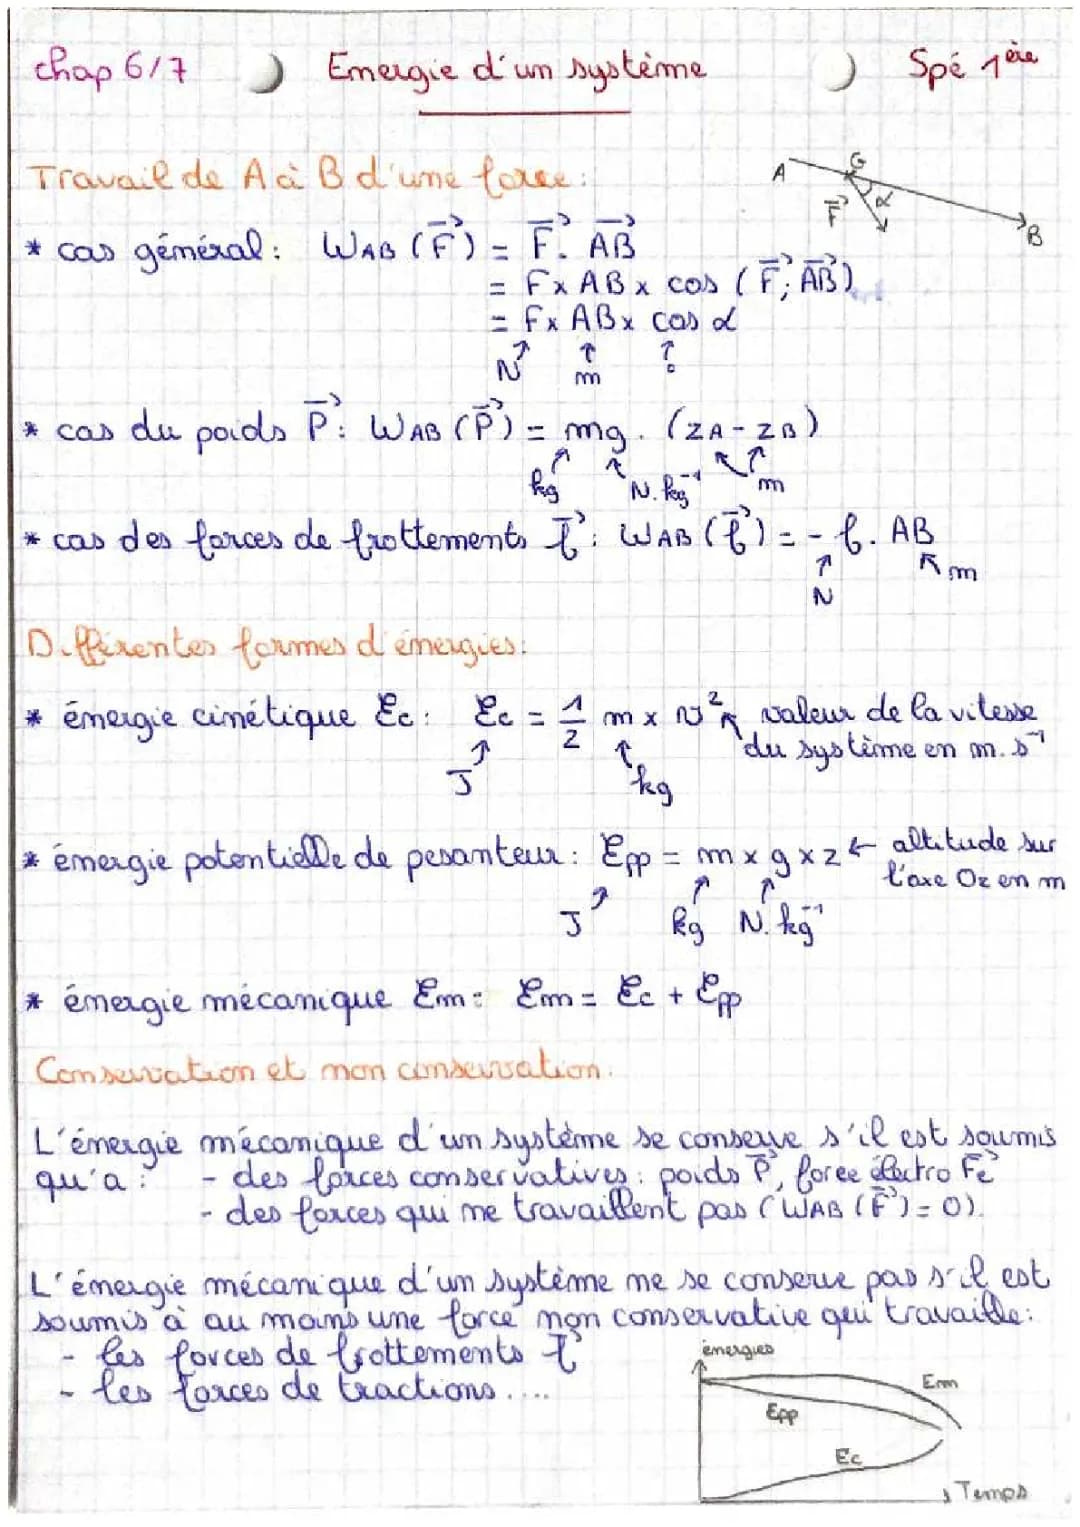 chap 6/7 Energie d'un système Spé 1ère
Travail de A à B d'une force:
A G α F⃗ B
* cas général: WAB (F⃗) = F⃗. AB⃗
= F x AB x cos (F⃗; AB⃗)
= F x AB x cos α
N m °
* cas du poids P⃗: WAB (P⃗) = mg. (zA - zB)
kg N.kg⁻¹ m
* cas des forces de frottements f⃗: WAB (f⃗) = - f. AB
N m
Différentes formes d'énergies:
* énergie cinétique Ec: Ec = 1/2 m x v² valeur de la vitesse
du système en m.s⁻¹
J kg
* énergie potentielle de pesanteur: Epp = m x g x z ← altitude sur
l'axe Oz en m
J kg N.kg⁻¹
* énergie mécanique Em: Em = Ec + Epp
Conservation et non conservation.
L'énergie mécanique d'un système se conserve s'il est soumis
qu'a: - des forces conservatives: poids P⃗, force électro Fe⃗
- des forces qui ne travaillent pas (WAB (F⃗) = 0).
L'énergie mécanique d'un système ne se conserve pas s'il est
soumis à au moins une force non conservative qui travaille:
- les forces de frottements f⃗
- les forces de tractions....
énergies
Em
Epp
Ec
Temps